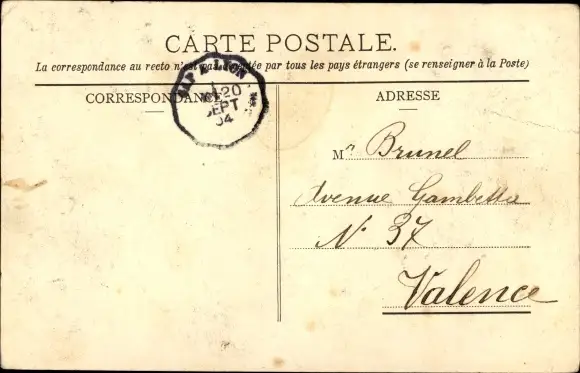 CARTE POSTALE.
La correspondance au recto n'est pas acceptée par tous les pays étrangers (se renseigner à la Poste)
GAP A LYON
20
SEPT
04
CORRESPONDANCE
ADRESSE
M Brunel
Avenue Gambetta
N° 37
Valence